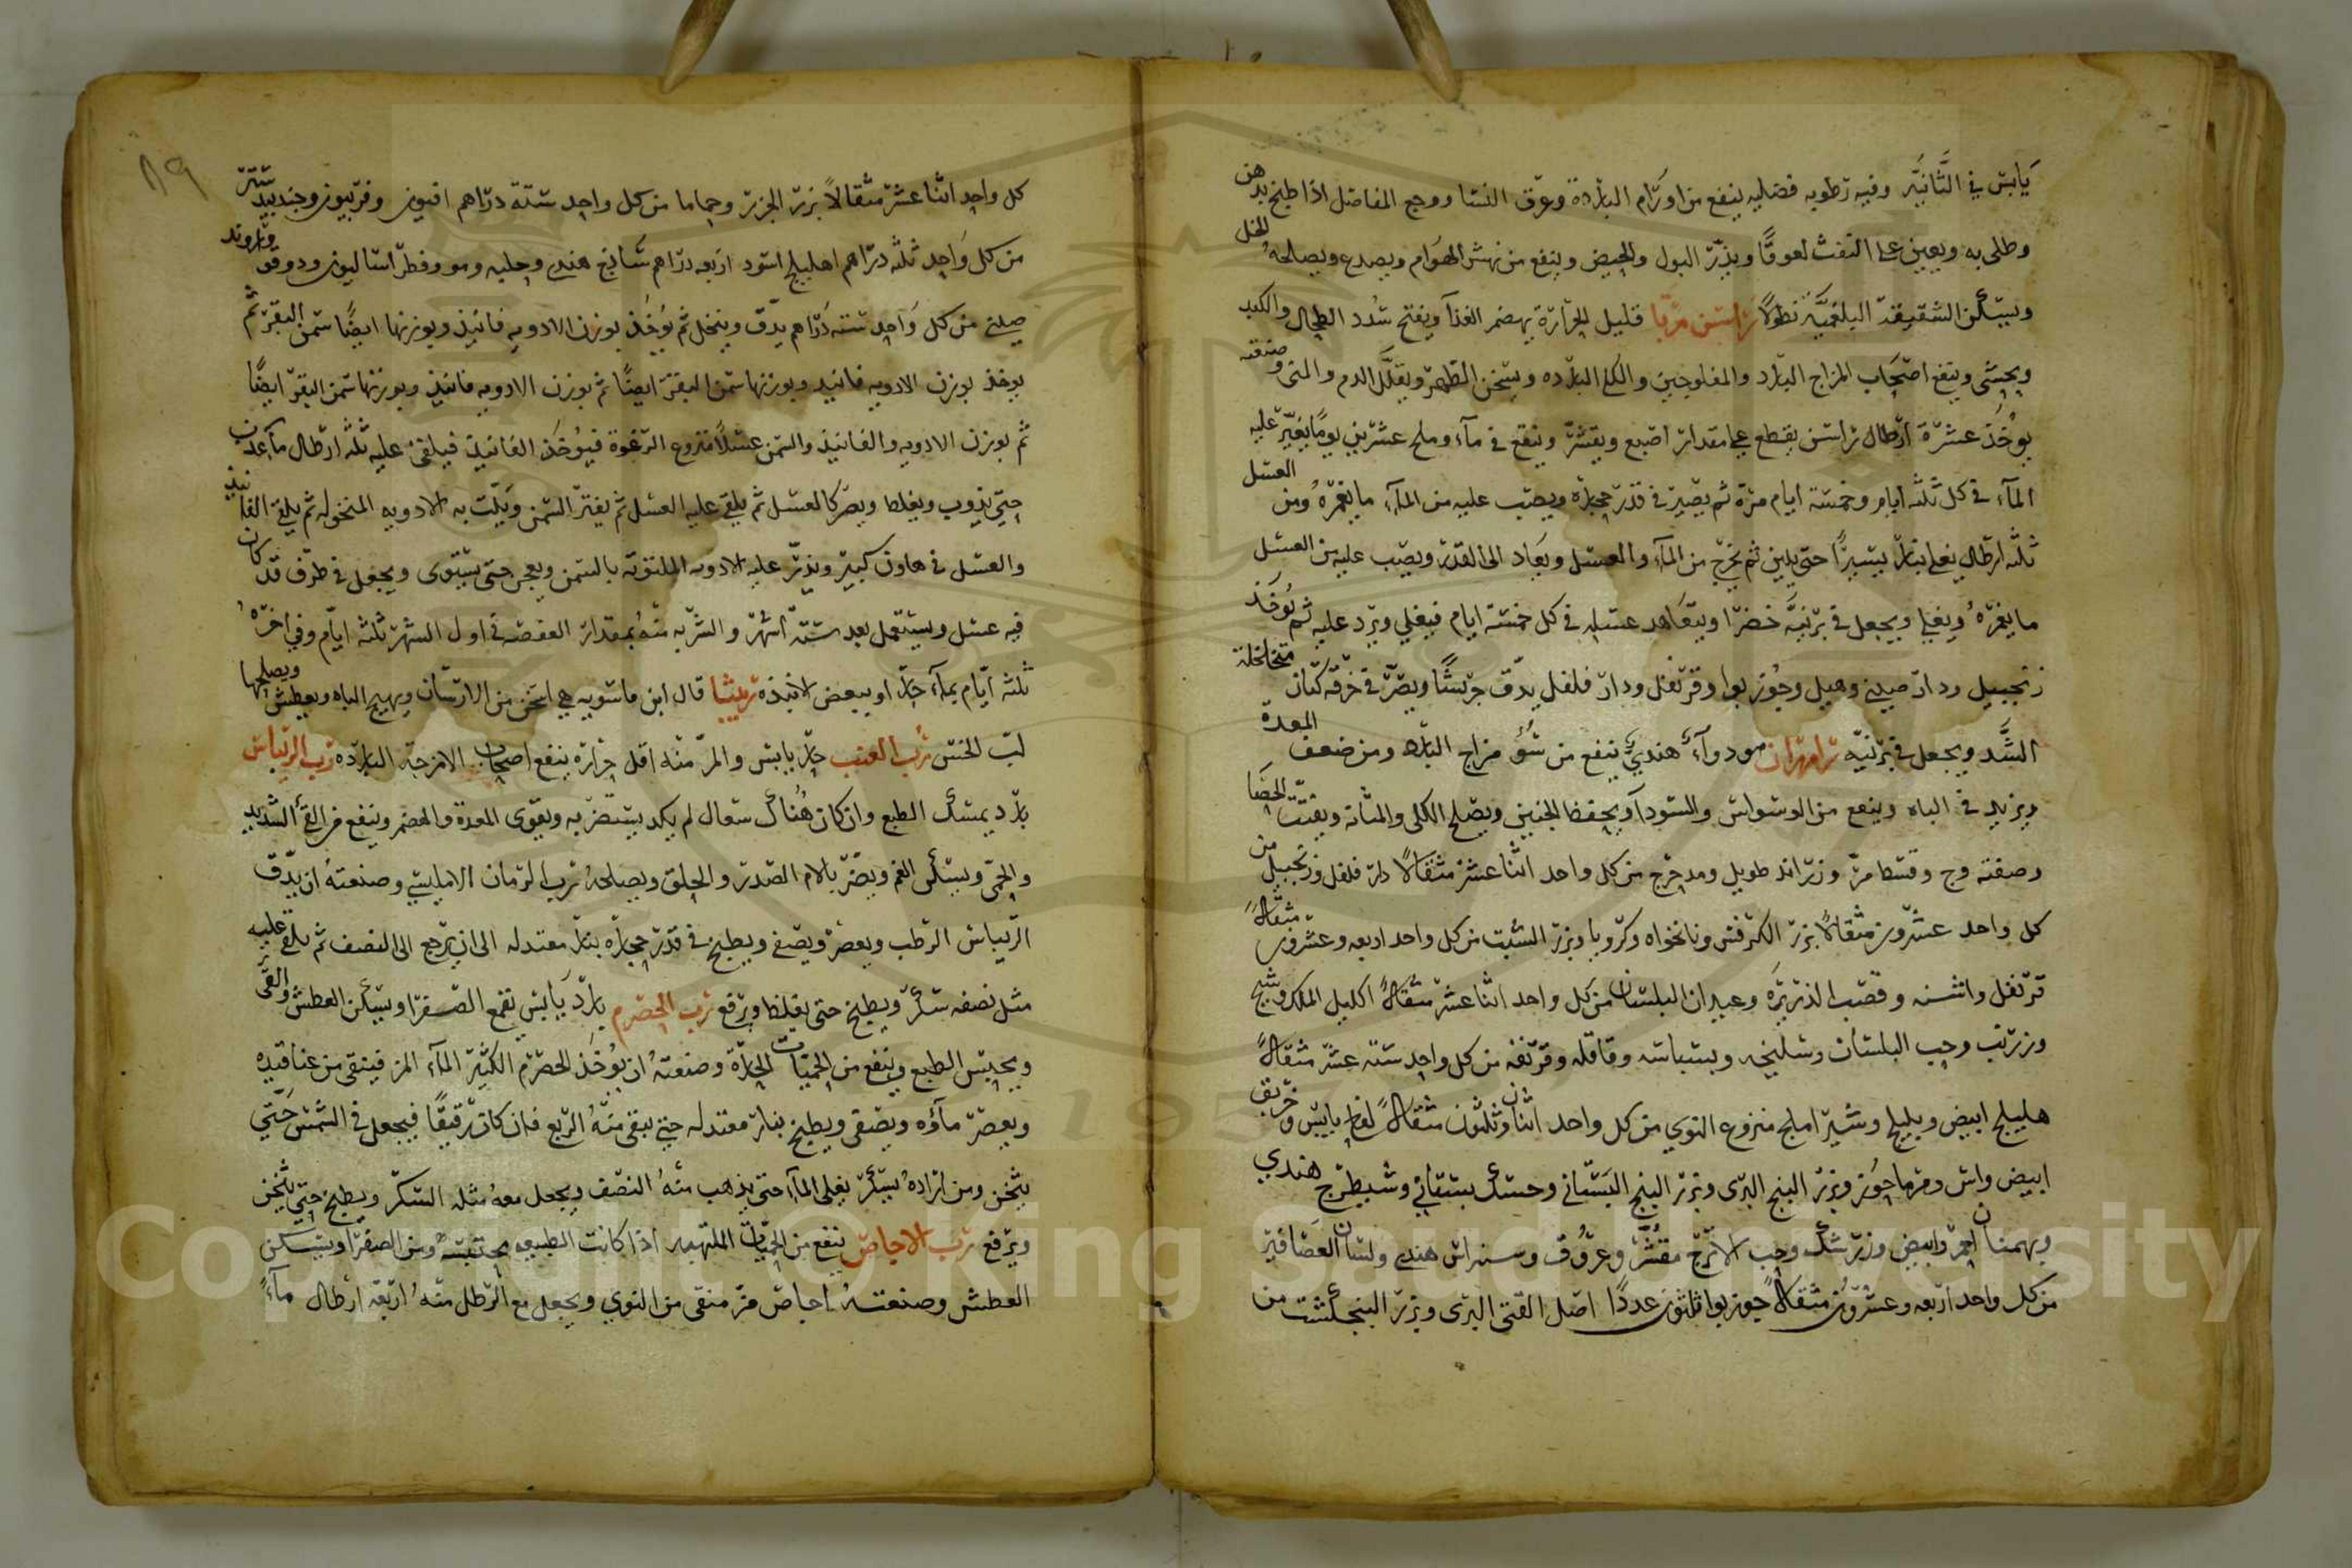 يابس في الثانية وفيه رطوبه فضليه ينفع من اورام البارده وعرق النسا ووجع المفاصل اذا طبخ بدهن
وطلى به ويعين على النفث لعوقًا ويدر البول والحيض وينفع من نهش الهوام ويصدع ويصلحه الخل
ويسكن الشقيقة البلغمية نطولًا راسن مربا قليل الحرارة يهضم الغذا ويفتح سدد الطحال والكبد
ويحشى وينفع اصحاب المزاج البارد والمفلوجين والكلى البارده ويسخن الظهر ويقلل الدم والمنى وصنعته
يوخذ عشرة ارطال راسن يقطع على مقدار اصبع ويقشر وينقع في مآء وملح عشرين يومًا يغير عليه
المآء في كل ثلثه ايام وخمسة ايام مرة ثم يصير في قدر حجاره ويصب عليه من المآء ما يغمره ومن العسل
ثلثه ارطال يغلى بنار يسيرًا حتى يلين ثم يخرج من المآء والعسل ويعاد الى القدر ويصب عليه من العسل
ما يغمره ويغلي ويجعل في برنية خضرا ويتعاهد عسله في كل خمسة ايام فيغلي ويرد عليه ثم يوخذ
زنجبيل ودار صيني وهيل وجوز بوا وقرنفل ودار فلفل يدق جريشًا ويصر في خرقة كتان متخلخلة
الشد ويجعل في برنيه رامهران هو دوآء هندي ينفع من سوء مزاج البارد ومن ضعف المعدة
ويزيد في الباه وينفع من الوسواس والسودآ ويحفظ الجنين ويصلح الكلى والمثانة ويفتت الحصا
وصفته وج وقسط مر وزراوند طويل ومدحرج من كل واحد اثنا عشر مثقالًا دار فلفل وزنجبيل من
كل واحد عشرون مثقالًا بزر الكرفس ونانخواه وكرويا وبزر الشبت من كل واحد اربعه وعشرون مثقالًا
قرنفل واشنه وقصب الذريره وعيدان البلسان من كل واحد اثنا عشر مثقالًا اكليل الملك وشيح
وزرنب وحب البلسان وسليخه وبسباسه وقاقله وقرنفه من كل واحد ستة عشر مثقالًا
هليلج ابيض وبليلج وشير املج منزوع النوى من كل واحد اثنان وثلثون مثقالًا لفاح يابس وخربق
ابيض واس ومرماحوز وبزر البنج البري وبزر البنج البستاني وحسك بستاني وشيطرج هندي
وبهمنان احمر وابيض وزرشك وحب الاترج مقشر وعروق وسنراس هندى ولسان العصافير
من كل واحد اربعه وعشرون مثقالًا جوز بوا ثلثون عددًا اصل القثى البرى وبزر البنجنكشت من
٨٩
كل واحد اثنا عشر مثقالًا بزر الجزر وحماما من كل واحد ستة دراهم افيون وفربيون وجندبيدستر
من كل واحد ثلثه دراهم اهليلج اسود اربعه دراهم ساذج هندى وحلبه ومو وفطراساليون ودوقو وراوند
صيني من كل واحد سته دراهم يدق وينخل ثم يوخذ بوزن الادويه فانيذ وبوزنها ايضًا سمن البقر ثم
يوخذ بوزن الادويه فانيذ وبوزنها سمن البقر ايضًا ثم بوزن الادويه فانيذ وبوزنها سمن البقر ايضًا
ثم بوزن الادويه والفانيذ والسمن عسلًا منزوع الرغوة فيوخذ الفانيذ فيلقى عليه ثلثه ارطال مآء عذب
حتى يذوب ويغلظ ويصير كالعسل ثم يلقى عليه العسل ثم يفتر السمن ويلت به الادويه المنخوله ثم يلقى الفانيذ
والعسل في هاون كبير ويذر عليه الادويه الملتوته بالسمن ويعجن حتى يستوى ويجعل في ظرف قد كان
فيه عسل ويستعمل بعد ستة اشهر والشربه منه بمقدار العفصه في اول الشهر ثلثه ايام وفي اخره
ثلثه ايام بمآء حار او ببعض الانبذه ربيثا قال ابن ماسويه هي اسخن من الارسان ويهيج الباه ويعطش ويصلحها
لب الخس رب العنب حار يابس والمر منه اقل حرارة ينفع اصحاب الامزجة البارده رب الريباس
بارد يمسك الطبع وان كان هناك سعال لم يكد يستضر به ويقوى المعدة والهضم وينفع من القئ الشديد
والحمى ويسكن الغم ويضر بالام الصدر والحلق ويصلحه رب الرمان الامليسي وصنعته ان يدق
الريباس الرطب ويعصر ويصفى ويطبخ في قدر حجاره بنار معتدله الى ان يرجع الى النصف ثم يلقى عليه
مثل نصفه سكر ويطبخ حتى يغلظ ويرفع رب الحصرم بارد يابس يقمع الصفرا ويسكن العطش والقى
ويحبس الطبع وينفع من الحميات الحارة وصنعته ان يوخذ الحصرم الكثير المآء المز فينقى من عناقيده
ويعصر مآؤه ويصفى ويطبخ بنار معتدله حتى يبقى منه الربع فان كان رقيقًا فيجعل في الشمس حتى
يثخن ومن اراده بسكر يغلى المآء حتى يذهب منه النصف ويجعل معه مثله السكر ويطبخ حتى يثخن
ويرفع رب الاجاص ينفع من الحميات الملتهبه اذا كانت الطبيعه محتبسة ومن الصفرا ويسكن
العطش وصنعته اجاص مز منقى من النوى ويجعل مع الرطل منه اربعة ارطال مآءً
Copyright © King Saud University
195